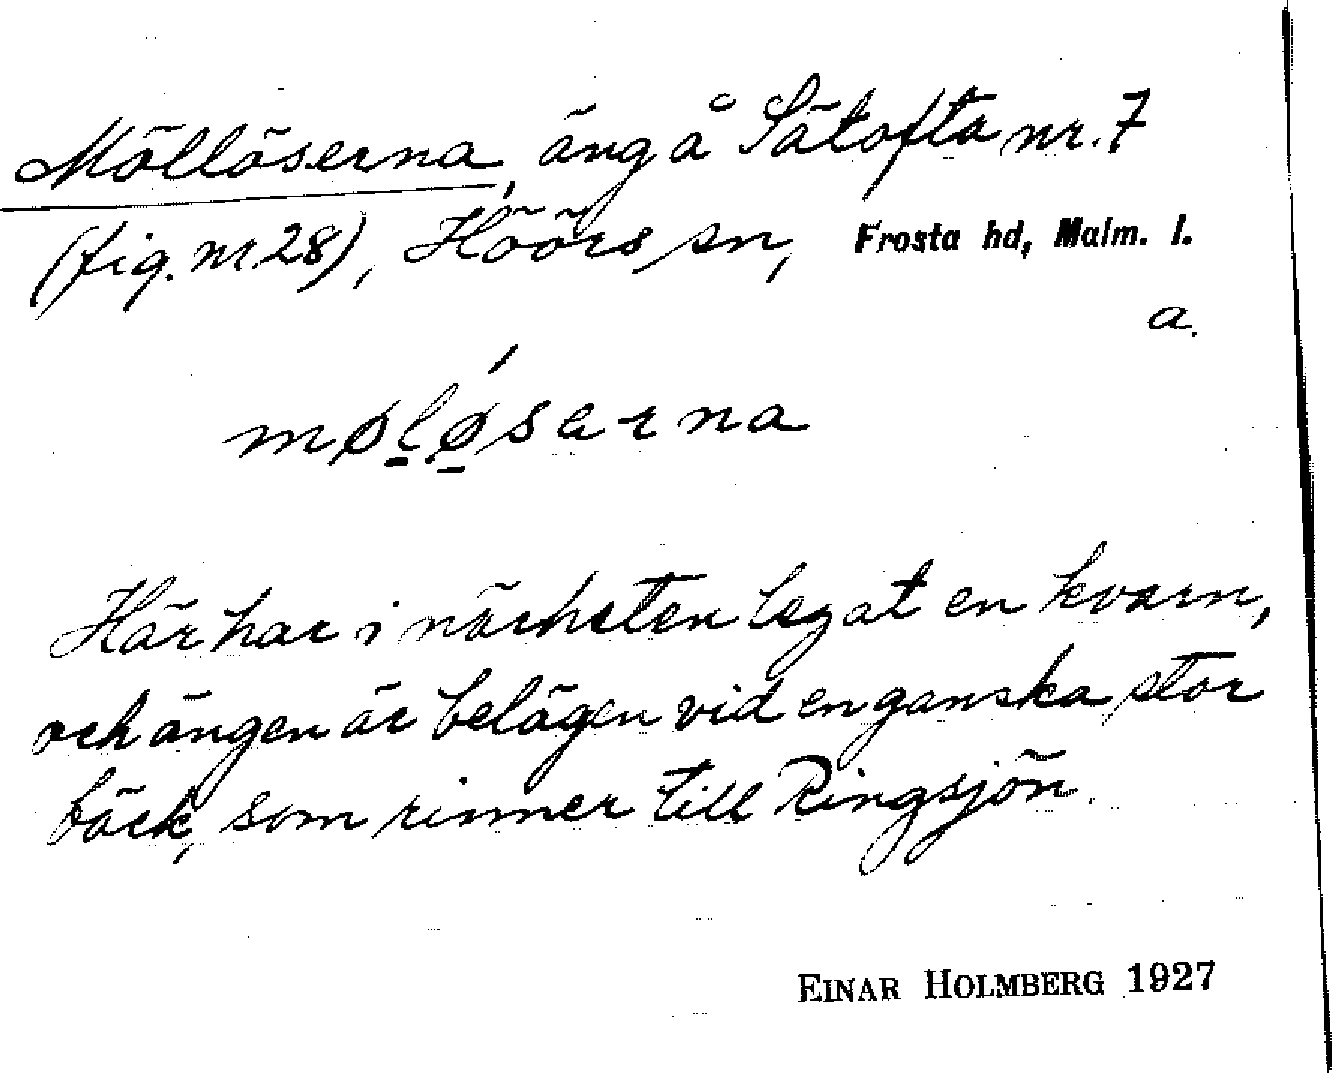 Möllöserna, äng å Sätofta nr. 7
(fig. nr. 28), Höörs sn, Frosta hd, Malm. l.
a.
møløsarna
Här har i närheten legat en kvarn,
och ängen är belägen vid en ganska stor
bäck, som rinner till Ringsjön.
EINAR HOLMBERG 1927